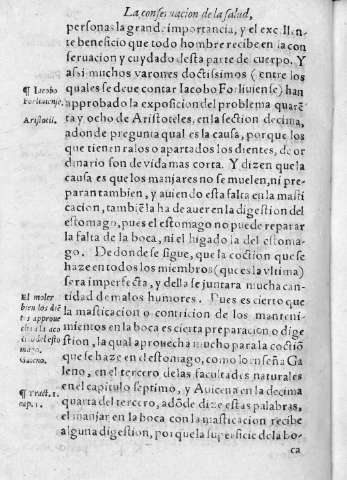 La conseruacion de la salud,
personas la grande importancia, y el excellen-
te beneficio que todo hombre recibe en la con
seruacion y cuydado desta parte de cuerpo. Y
assi muchos varones doctissimos (entre los
quales se deue contar Iacobo Forliuiense) han
¶ Iacobo
Forliuiense.
approbado la exposicion del problema quarẽ
ta y ocho de Aristoteles, en la section decima,
Aristotil.
adonde pregunta qual es la causa, porque los
que tienen ralos o apartados los dientes, de or
dinario son de vida mas corta. Y dizen que la
causa es que los manjares no se muelen, ni pre
paran tambien, y auiendo esta falta en la masti
cacion, tambiẽ la ha de auer en la digestion del
estomago, pues el estomago no puede reparar
la falta de la boca, ni el higado la del estoma-
go. De donde se sigue, que la coction que se
haze en todos los miembros (que es la vltima)
sera imperfecta, y della se juntara mucha can-
tidad de malos humores. Pues es cierto que
El moler
bien los diẽ
tes approue
cha a la coc
ciõ del esto
mago.
Galeno.
la masticacion o contricion de los mantenì
mientos en la boca es cierta preparacion o dige
stion, la qual aprouecha mucho para la coctiõ
que se haze en el estomago, como lo enseña Ga
leno, en el tercero de las facultades naturales
en el capitulo septimo, y Auicena en la decima
¶ Tract. 1.
cap. 1.
quarta del tercero, adõde dize estas palabras,
el manjar en la boca con la masticacion recibe
alguna digestion, porque la superficie de la bo-
ca